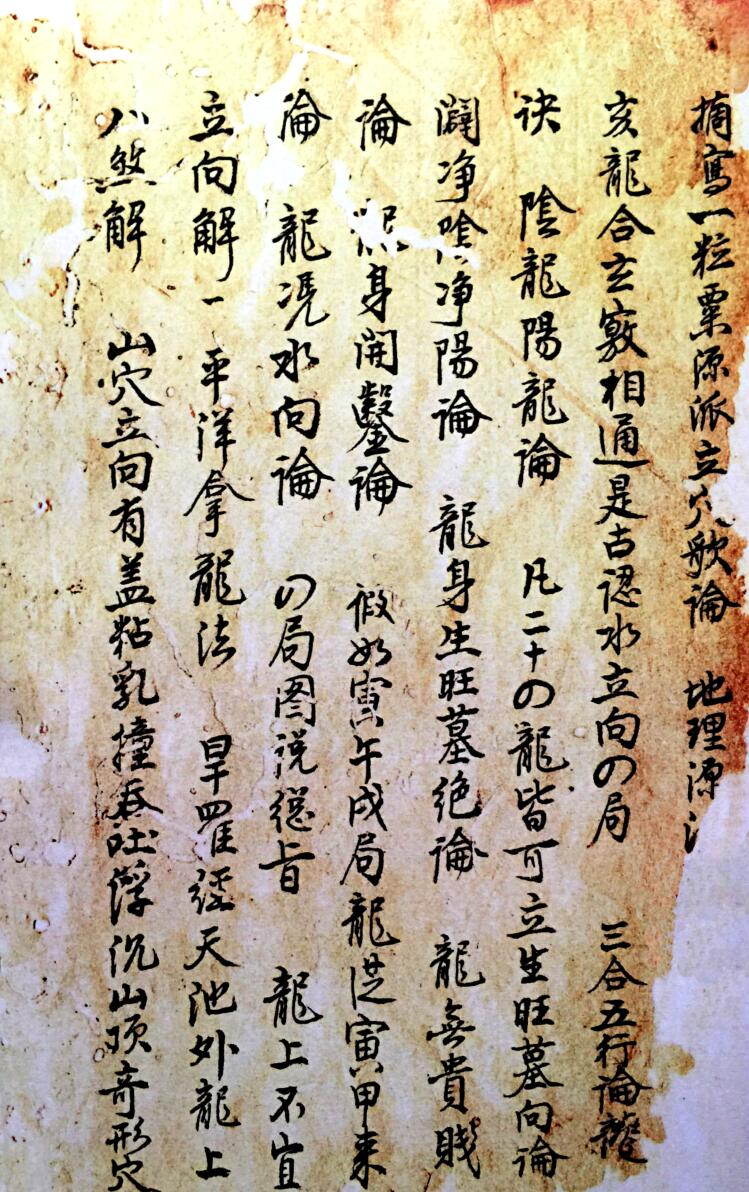 摘寫一粒粟源派立穴歌論 地理源
亥龍合玄竅相通是古認水立向の局 三合五行論龍
訣 陰龍陽龍論 凡二十の龍皆可立生旺墓向論
闢净陰净陽論 龍身生旺墓绝論 龍無貴賤
論 身開鑿論 假如寅午戌局龍從寅甲来
論 龍凴水向論 の局图説總旨 龍上不宜
立向解一 平洋拿龍法 旱罗经天池外龍上
八煞解 山穴立向有盖粘乳撞吞吐浮沉山顶奇形穴